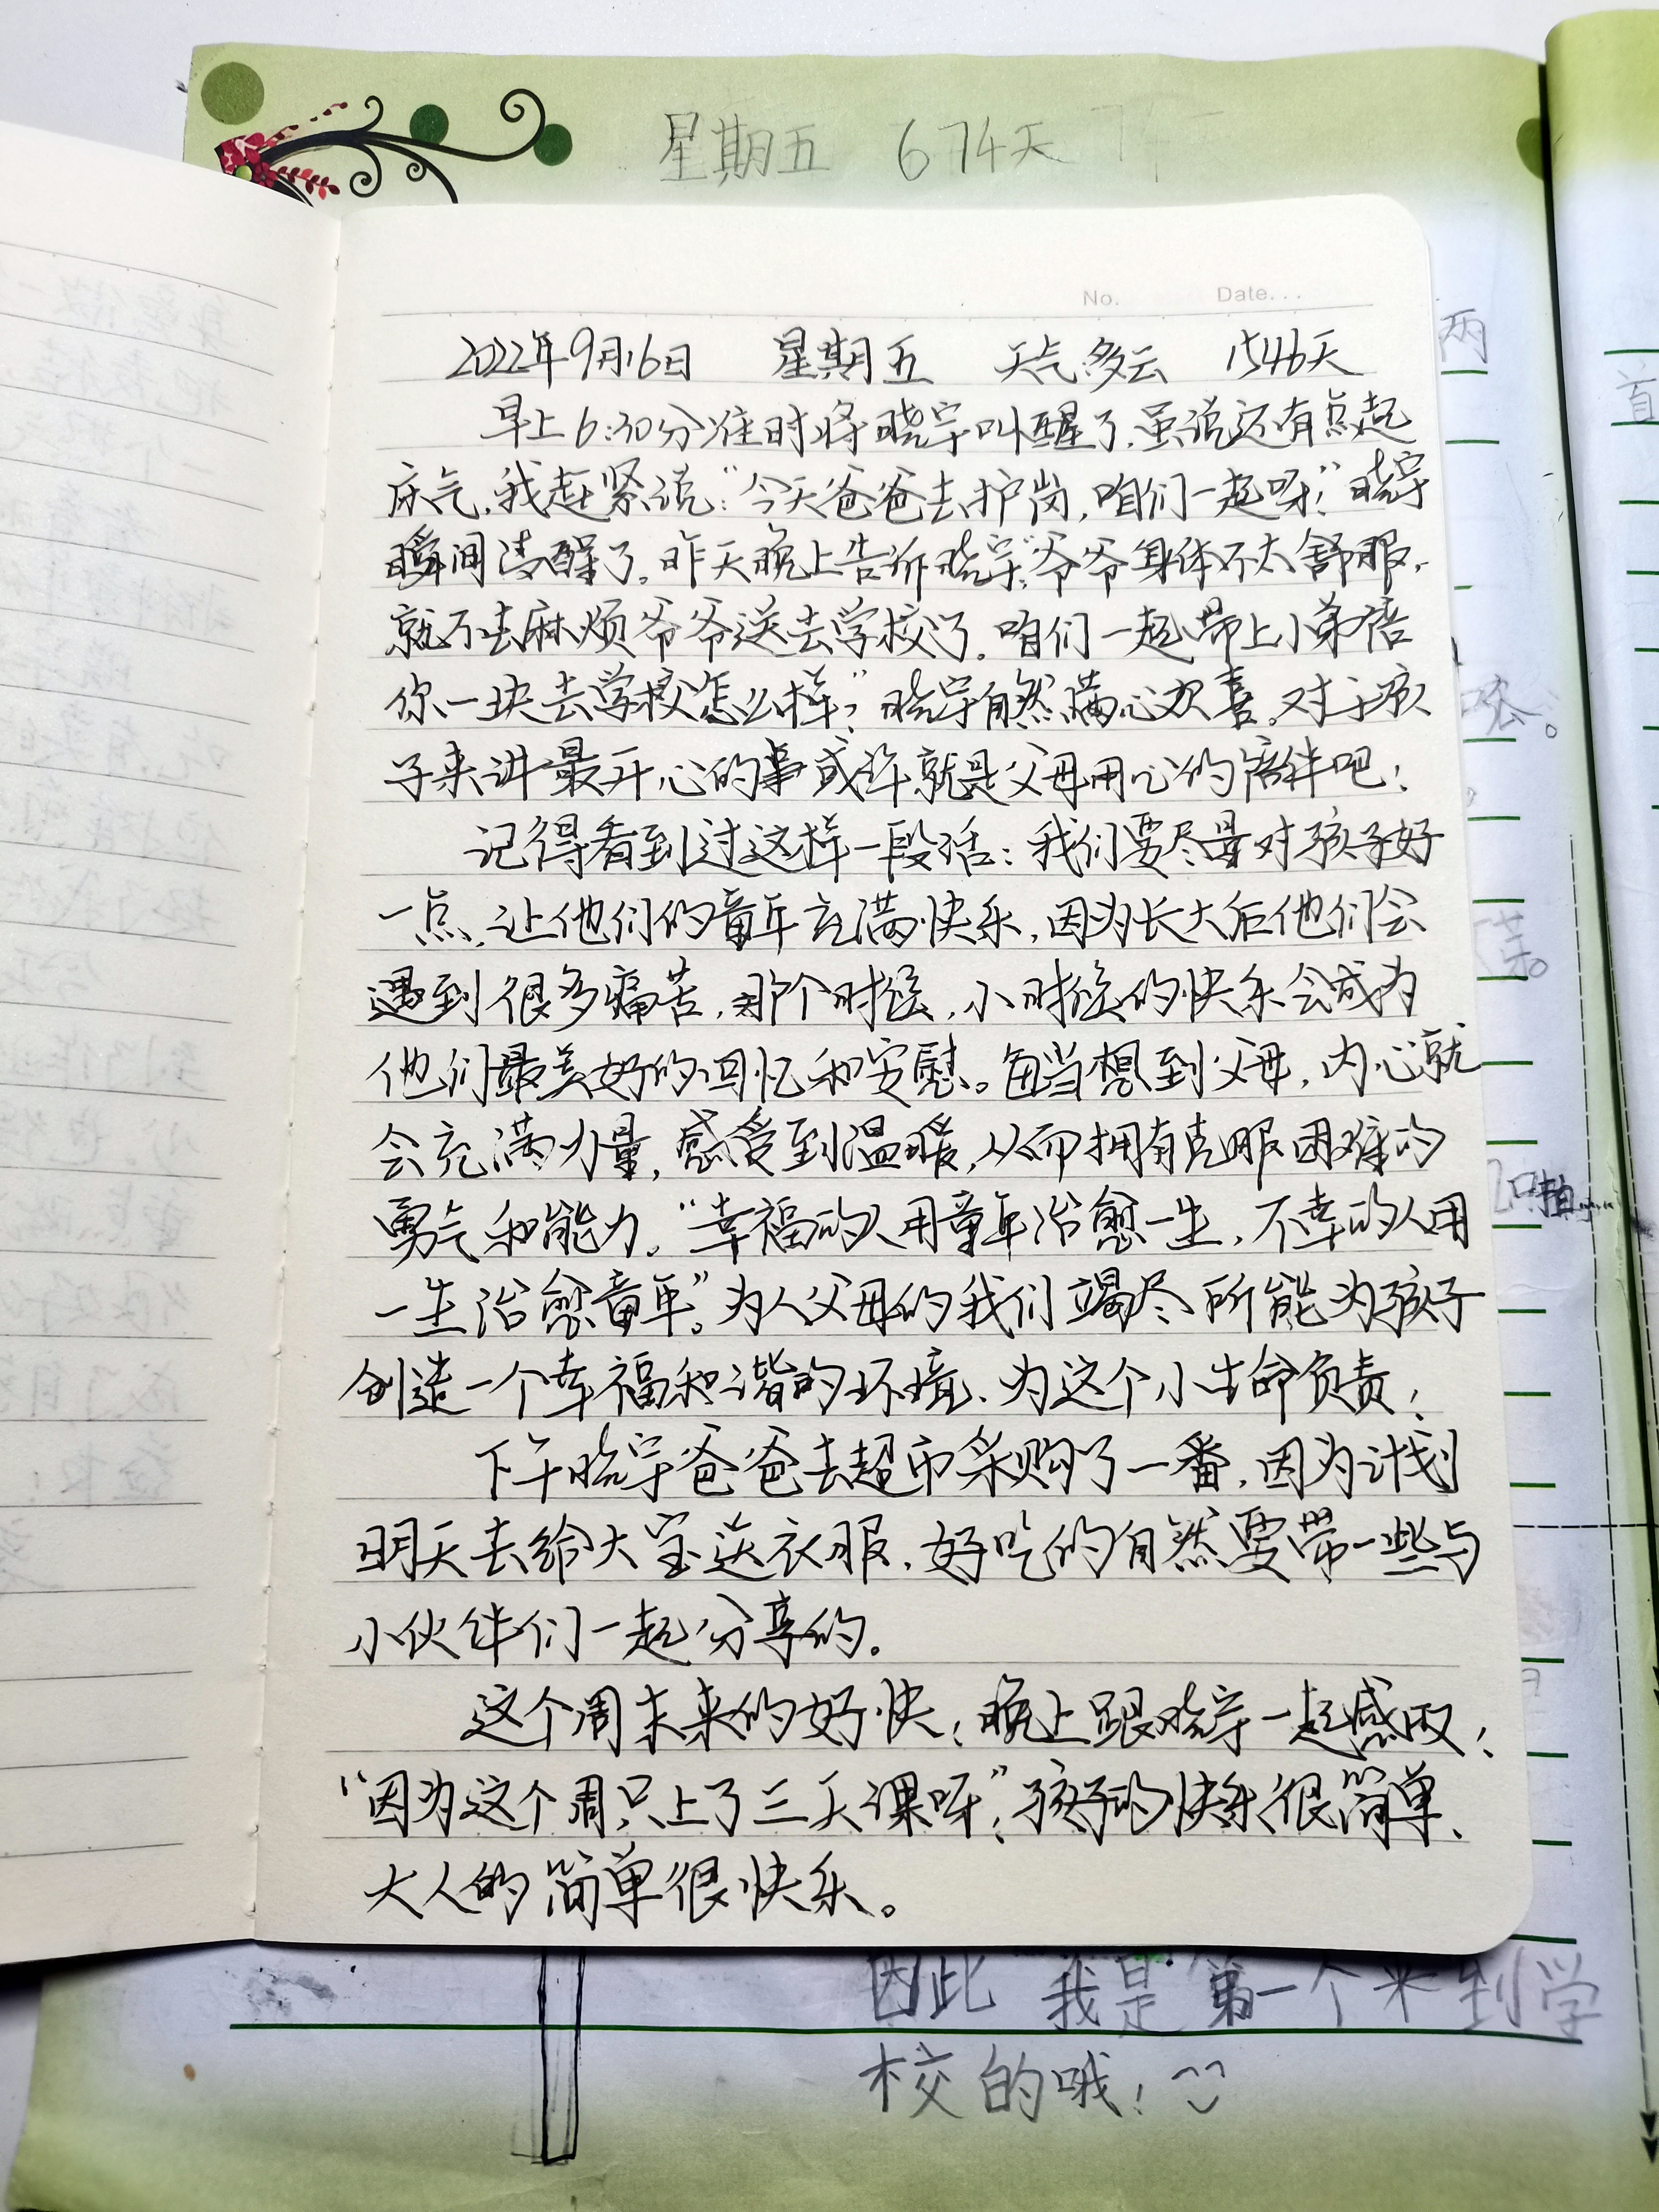 星期五 674天
No. Date...
2022年9月16日 星期五 天气多云 1546天
早上6:30分准时将晓宇叫醒了,虽说还有点起
床气,我赶紧说:“今天爸爸去护岗,咱们一起呀!”晓宇
瞬间清醒了。昨天晚上告诉晓宇:“爷爷身体不太舒服,
就不去麻烦爷爷送去学校了。咱们一起带上小弟陪
你一块去学校怎么样?”晓宇自然满心欢喜。对于孩
子来讲最开心的事或许就是父母用心的陪伴吧!
记得看到过这样一段话:我们要尽量对孩子好
一点,让他们的童年充满快乐,因为长大后他们会
遇到很多痛苦,那个时候,小时候的快乐会成为
他们最美好的回忆和安慰。每当想到父母,内心就
会充满力量,感受到温暖,从而拥有克服困难的
勇气和能力。“幸福的人用童年治愈一生,不幸的人用
一生治愈童年”。为人父母的我们竭尽所能为孩子
创造一个幸福和谐的环境、为这个小生命负责!
下午晓宇爸爸去超市采购了一番,因为计划
明天去给大宝送衣服,好吃的自然要带一些与
小伙伴们一起分享的。
这个周末来的好快!晚上跟晓宇一起感叹!
“因为这个周只上了三天课呀”!孩子的快乐很简单、
大人的简单很快乐。
两
首
因此 我是第一个来到学
校的哦!